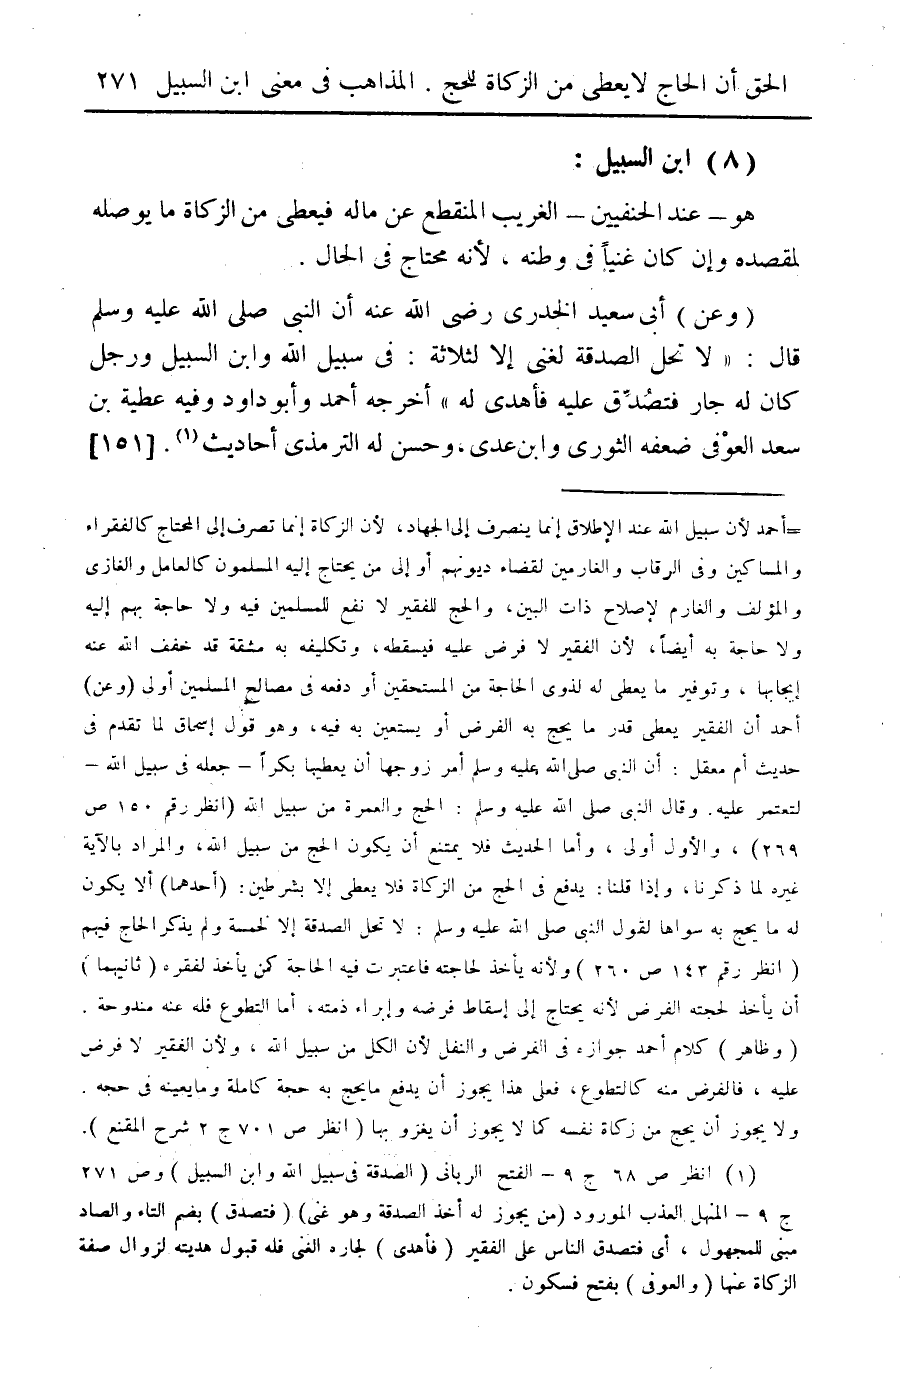 الحق أن الحاج لايعطى من الزكاة للحج . المذاهب فى معنى ابن السبيل ٢٧١
(٨) ابن السبيل :
هو – عند الحنفيين – الغريب المنقطع عن ماله فيعطى من الزكاة ما يوصله
لمقصده وإن كان غنياً فى وطنه ، لأنه محتاج فى الحال .
( وعن ) أبى سعيد الخدرى رضى الله عنه أن النبى صلى الله عليه وسلم
قال : « لا تحل الصدقة لغنى إلا لثلاثة : فى سبيل الله وابن السبيل ورجل
كان له جار فتصُدِّق عليه فأهدى له » أخرجه أحمد وأبو داود وفيه عطية بن
سعد العوْفى ضعفه الثورى وابن عدى ، وحسن له الترمذى أحاديث(١) . [١٥١]
=أحمد لأن سبيل الله عند الإطلاق إنما ينصرف إلى الجهاد، لأن الزكاة إنما تصرف إلى المحتاج كالفقراء
والمساكين وفى الرقاب والغارمين لقضاء ديونهم أو إلى من يحتاج إليه المسلمون كالعامل والغازى
والمؤلف والغارم لإصلاح ذات البين، والحج للفقير لا نفع للمسلمين فيه ولا حاجة بهم إليه
ولا حاجة به أيضاً، لأن الفقير لا فرض عليه فيسقطه، وتكليفه به مشقة قد خفف الله عنه
إيجابها ، وتوفير ما يعطى له لذوى الحاجة من المستحقين أو دفعه فى مصالح المسلمين أولى (وعن)
أحمد أن الفقير يعطى قدر ما يحج به الفرض أو يستعين به فيه، وهو قول إسحاق لما تقدم فى
حديث أم معقل : أن النبى صلى الله عليه وسلم أمر زوجها أن يعطيها بكراً – جعله فى سبيل الله –
لتعتمر عليه. وقال النبى صلى الله عليه وسلم : الحج والعمرة من سبيل الله (انظر رقم ١٥٠ ص
٢٦٩) ، والأول أولى ، وأما الحديث فلا يمتنع أن يكون الحج من سبيل الله، والمراد بالآية
غيره لما ذكرنا، وإذا قلنا: يدفع فى الحج من الزكاة فلا يعطى إلا بشرطين: (أحدهما) ألا يكون
له ما يحج به سواها لقول النبى صلى الله عليه وسلم : لا تحل الصدقة إلا لخمسة ولم يذكر الحاج فيهم
( انظر رقم ١٤٣ ص ٢٦٠ ) ولأنه يأخذ لحاجته فاعتبرت فيه الحاجة كمن يأخذ لفقره ( ثانيهما )
أن يأخذ لحجته الفرض لأنه يحتاج إلى إسقاط فرضه وإبراء ذمته، أما التطوع فله عنه مندوحة .
( وظاهر ) كلام أحمد جوازه فى الفرض والنفل لأن الكل من سبيل الله ، ولأن الفقير لا فرض
عليه ، فالفرض منه كالتطوع، فعلى هذا يجوز أن يدفع مايحج به حجة كاملة ومايعينه فى حجه .
ولا يجوز أن يحج من زكاة نفسه كما لا يجوز أن يغزو بها ( انظر ص ٧٠١ ج ٢ شرح المقنع ).
(١) انظر ص ٦٨ ج ٩ – الفتح الربانى ( الصدقة فى سبيل الله وابن السبيل ) وص ٢٧١
ج ٩ – المنهل العذب المورود (من يجوز له أخذ الصدقة وهو غنى) ( فتصدق ) بضم التاء والصاد
مبنى للمجهول ، أى فتصدق الناس على الفقير ( فأهدى ) لجاره الغنى فله قبول هديته لزوال صفة
الزكاة عنها ( والعوفى ) بفتح فسكون .